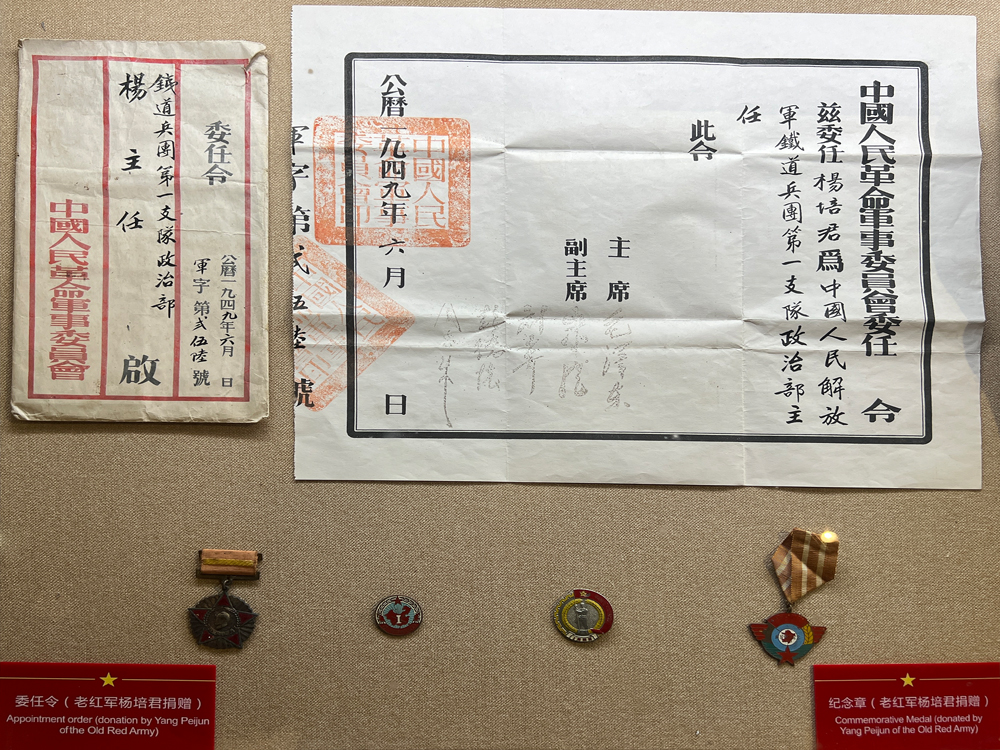 委任令
公曆一九四九年六月 日
軍字第弍伍陸號
鐵道兵團第一支隊政治部
楊主任 啟
中國人民革命軍事委員會
中國人民革命軍事委員會委任令
茲委任楊培君爲中國人民解放
軍鐵道兵團第一支隊政治部主
任
此令
主席 毛澤東
副主席
公曆一九四九年六月 日
軍字第弍伍陸號
中國人民
I
委任令（老红军杨培君捐赠）
Appointment order (donation by Yang Peijun
of the Old Red Army)
纪念章（老红军杨培君捐赠）
Commemorative Medal (donated by
Yang Peijun of the Old Red Army)